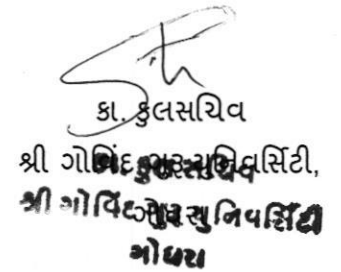 કા. કુલસચિવ
શ્રી ગોવિંદ ગુરૂ યુનિવર્સિટી,
કુલસચિવ
શ્રી ગોવિંદ ગુરુ યુનિવર્સિટી
ગોધરા